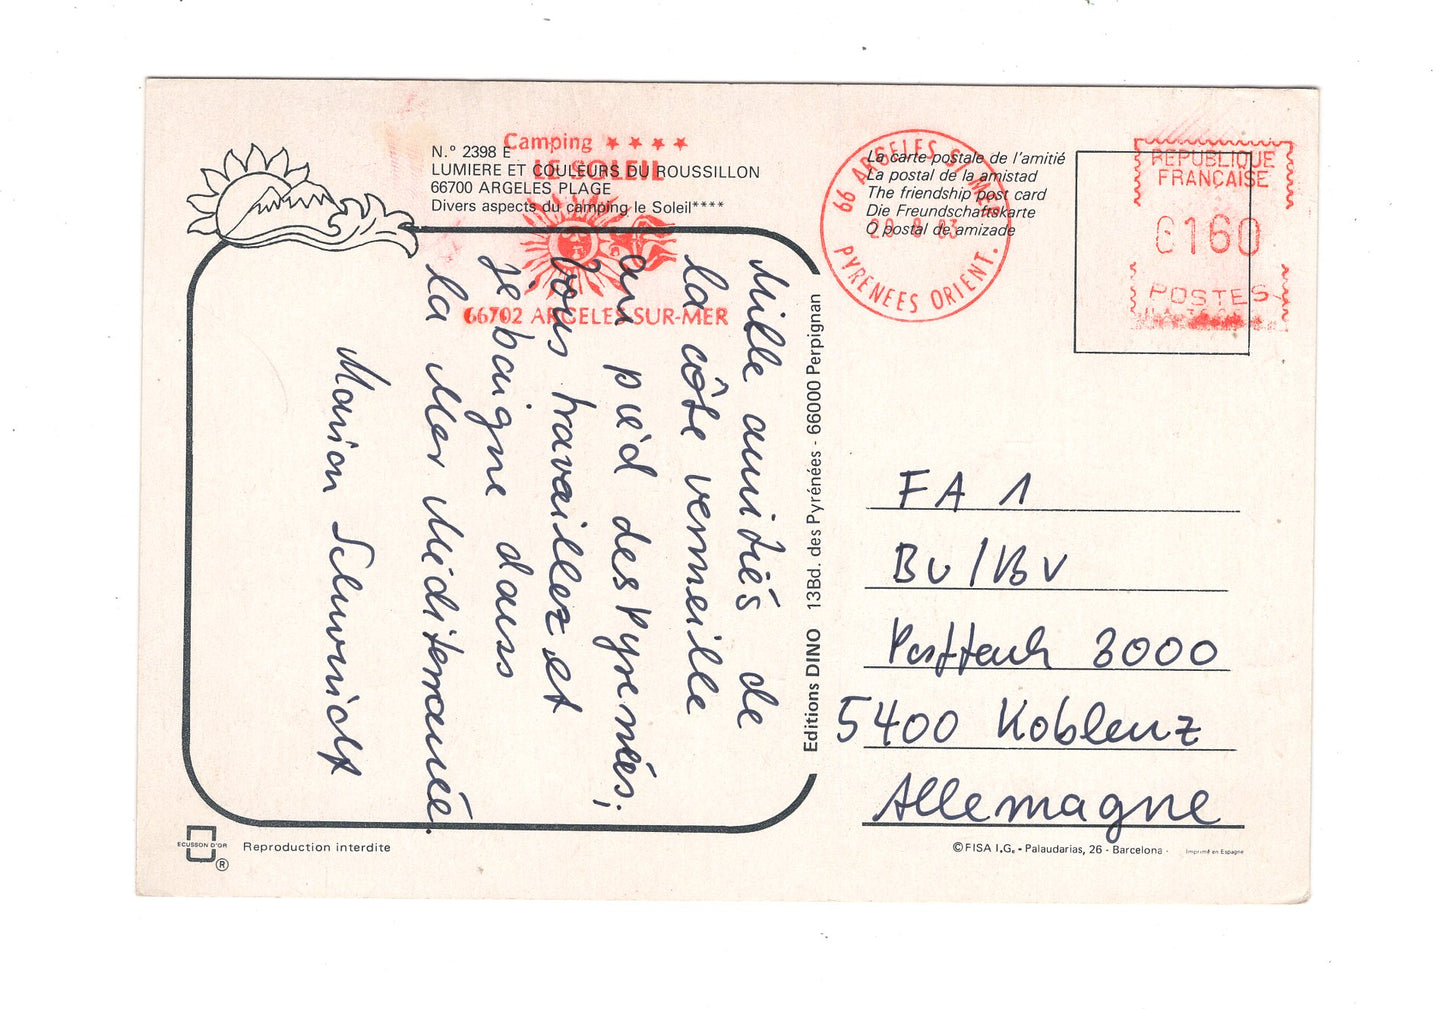 N.º 2398 E
LUMIERE ET COULEURS DU ROUSSILLON
66700 ARGELES PLAGE
Divers aspects du camping le Soleil****
Camping ★ ★ ★ ★
LE SOLEIL
66702 ARGELES-SUR-MER
Mille amitiés de
la côte vermeille
au pied des Pyrenées;
Vous travaillez et
je baigne dans
la Mer Méditerranée.
Marion
Editions DINO 13Bd. des Pyrénées - 66000 Perpignan
La carte postale de l'amitié
La postal de la amistad
The friendship post card
Die Freundschaftskarte
O postal de amizade
66 ARGELES S/ MER
PYRENEES ORIENT.
REPUBLIQUE
FRANÇAISE
160
POSTES
FA 1
BU / BV
Postfach 3000
5400 Koblenz
Allemagne
ECUSSON D'OR
®
Reproduction interdite
© FISA I.G. - Palaudarias, 26 - Barcelona - Imprimé en Espagne